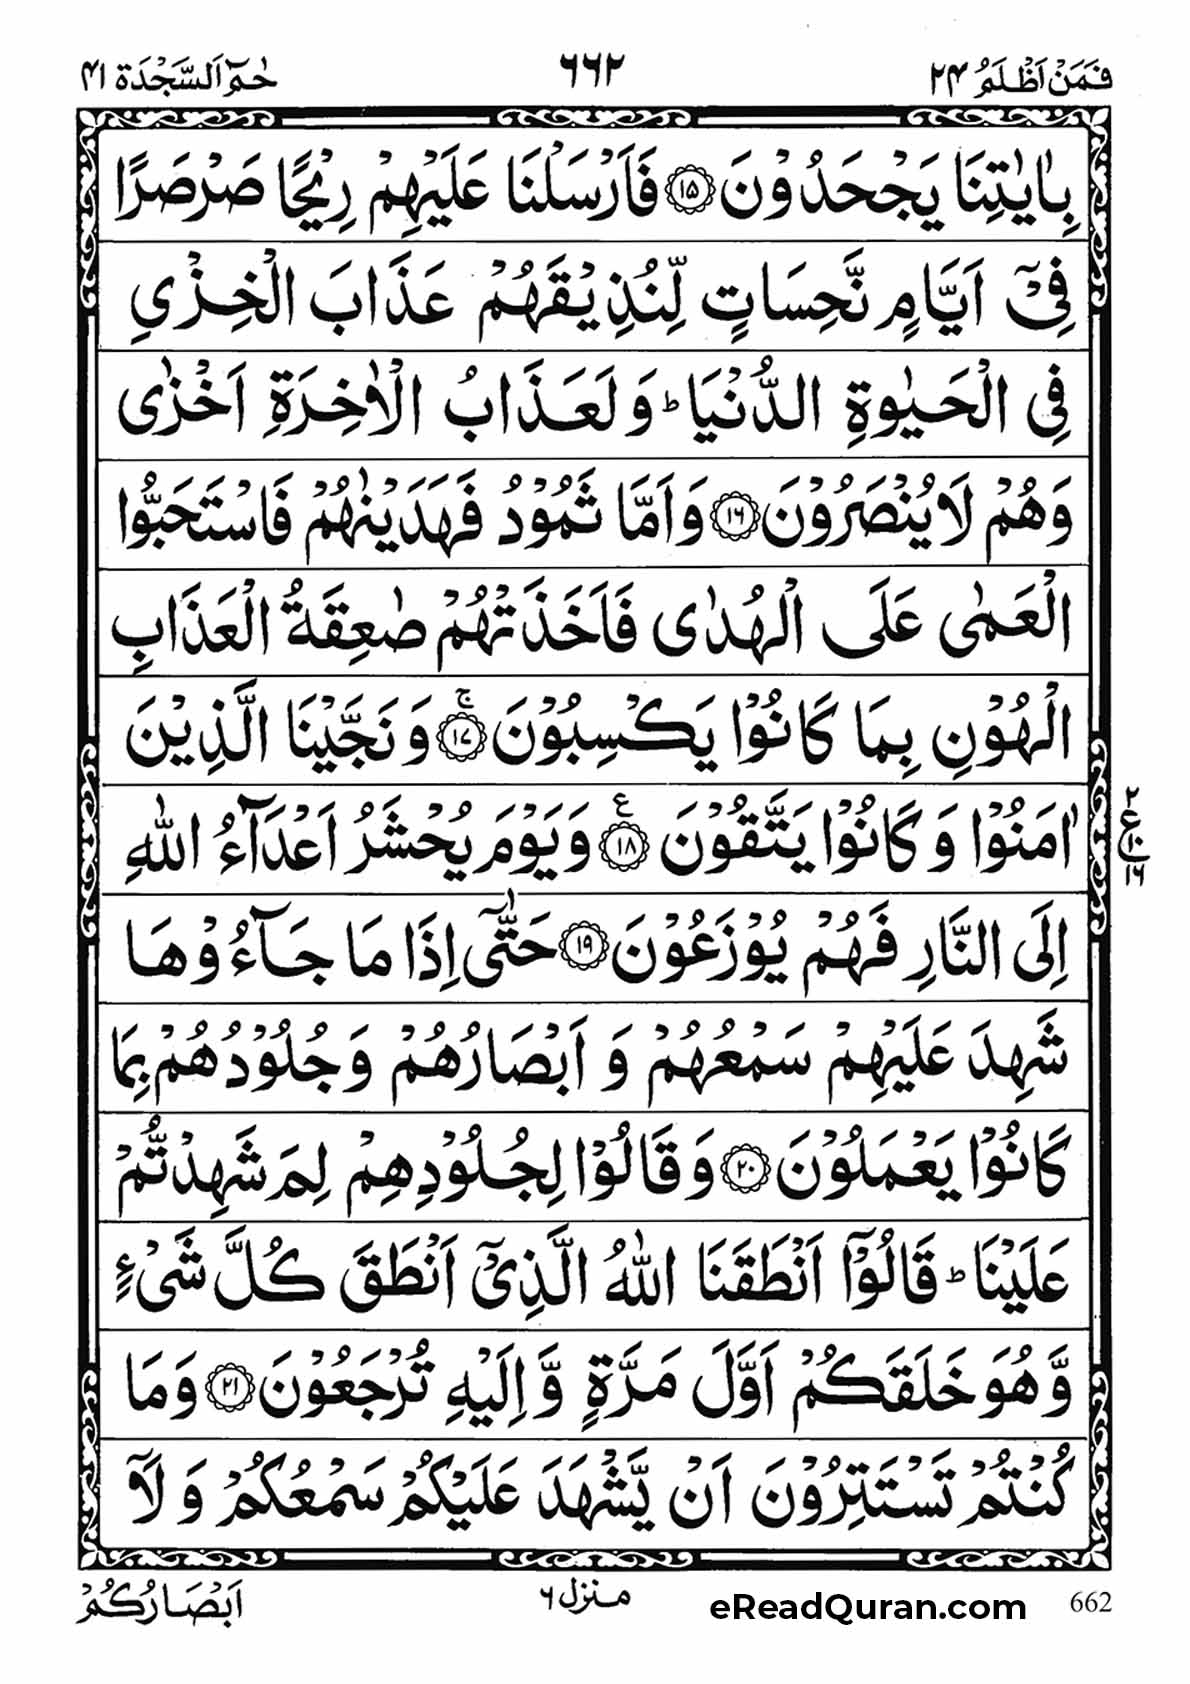 فَمَنْ اَظْلَمُ ٢٤
٦٦٢
حٰمٓ اَلسَّجْدَة ٤١
بِاٰيٰتِنَا يَجْحَدُوْنَ ١٥ فَاَرْسَلْنَا عَلَيْهِمْ رِيْحًا صَرْصَرًا
فِيْٓ اَيَّامٍ نَّحِسَاتٍ لِّنُذِيْقَهُمْ عَذَابَ الْخِزْيِ
فِي الْحَيٰوةِ الدُّنْيَا ؕ وَلَعَذَابُ الْاٰخِرَةِ اَخْزٰى
وَهُمْ لَا يُنْصَرُوْنَ ١٦ وَاَمَّا ثَمُوْدُ فَهَدَيْنٰهُمْ فَاسْتَحَبُّوا
الْعَمٰى عَلَى الْهُدٰى فَاَخَذَتْهُمْ صٰعِقَةُ الْعَذَابِ
الْهُوْنِ بِمَا كَانُوْا يَكْسِبُوْنَ ١٧ ۚ وَنَجَّيْنَا الَّذِيْنَ
اٰمَنُوْا وَكَانُوْا يَتَّقُوْنَ ١٨ ع وَيَوْمَ يُحْشَرُ اَعْدَآءُ اللّٰهِ
٢ ع ١٦
اِلَى النَّارِ فَهُمْ يُوْزَعُوْنَ ١٩ حَتّٰٓى اِذَا مَا جَآءُوْهَا
شَهِدَ عَلَيْهِمْ سَمْعُهُمْ وَاَبْصَارُهُمْ وَجُلُوْدُهُمْ بِمَا
كَانُوْا يَعْمَلُوْنَ ٢٠ وَقَالُوْا لِجُلُوْدِهِمْ لِمَ شَهِدْتُّمْ
عَلَيْنَا ؕ قَالُوْٓا اَنْطَقَنَا اللّٰهُ الَّذِيْٓ اَنْطَقَ كُلَّ شَيْءٍ
وَّهُوَ خَلَقَكُمْ اَوَّلَ مَرَّةٍ وَّاِلَيْهِ تُرْجَعُوْنَ ٢١ وَمَا
كُنْتُمْ تَسْتَتِرُوْنَ اَنْ يَّشْهَدَ عَلَيْكُمْ سَمْعُكُمْ وَلَآ
اَبْصَارُكُمْ
منزل ٦
eReadQuran.com
662